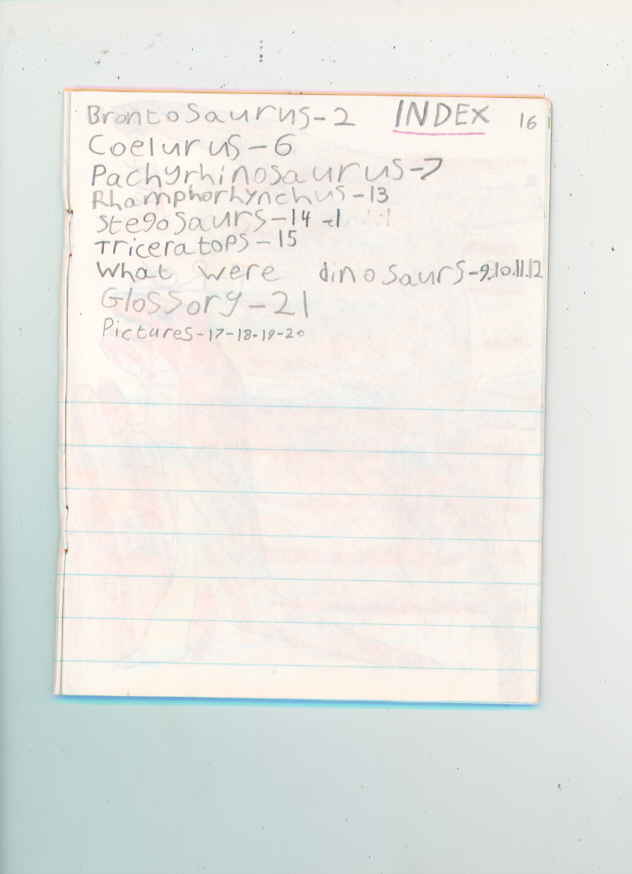 INDEX 16
Brontosaurus-2
Coelurus-6
Pachyrhinosaurus-7
Rhamphorhynchus-13
Stegosaurs-14-1
Triceratops-15
What were dinosaurs-9.10.11.12
Glossory-21
Pictures-17-18-19-20